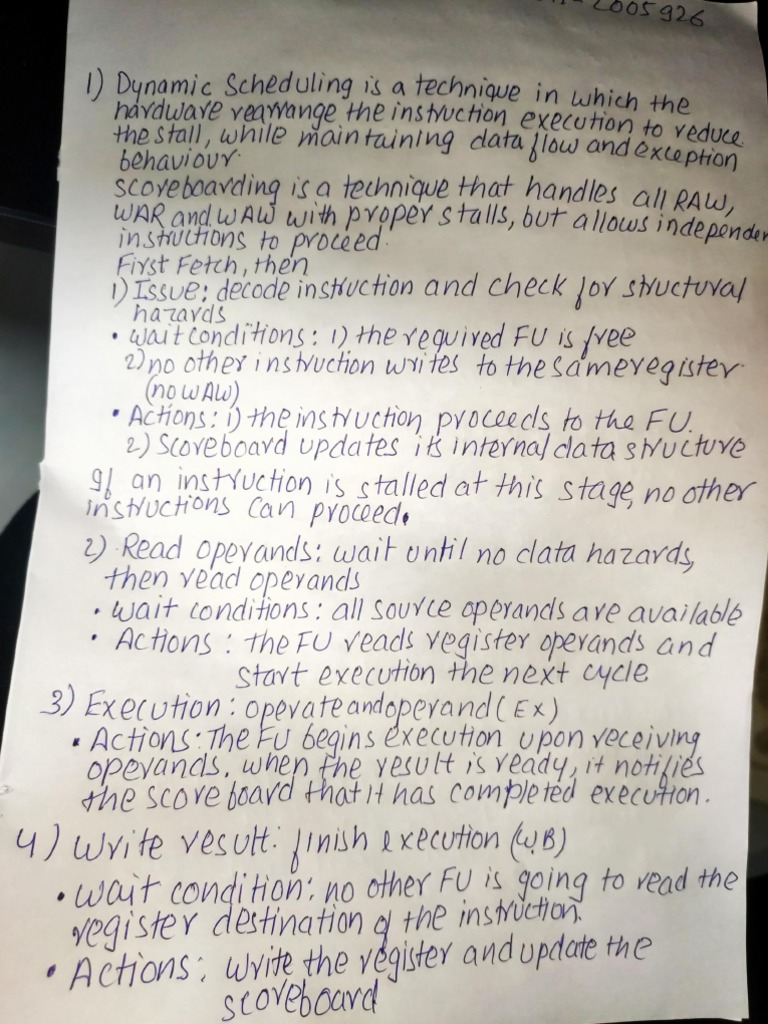 2005926
1) Dynamic Scheduling is a technique in which the
hardware rearrange the instruction execution to reduce
the stall, while maintaining data flow and exception
behaviour.
scoreboarding is a technique that handles all RAW,
WAR and WAW with proper stalls, but allows independen
instructions to proceed.
First Fetch, then
1) Issue: decode instruction and check for structural
hazards
• wait conditions: 1) the required FU is free
2) no other instruction writes to the same register
(no WAW)
• Actions: 1) the instruction proceeds to the FU.
2) Scoreboard updates its internal data structure
If an instruction is stalled at this stage, no other
instructions can proceed.
2) Read operands: wait until no data hazards,
then read operands
• wait conditions: all source operands are available
• Actions: the FU reads register operands and
start execution the next cycle
3) Execution: operate and operand (EX)
• Actions: The FU begins execution upon receiving
operands. when the result is ready, it notifies
the score board that it has completed execution.
4) Write result: finish execution (WB)
• wait condition: no other FU is going to read the
register destination of the instruction.
• Actions: write the register and update the
scoreboard